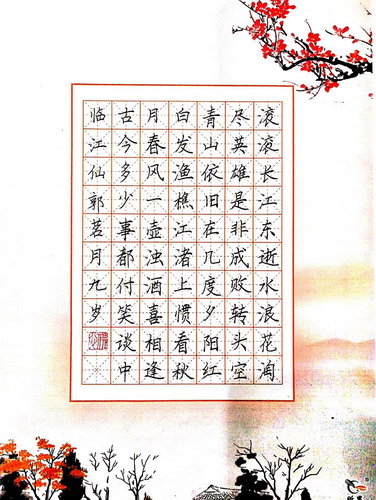 滚滚长江东逝水浪花淘
尽英雄是非成败转头空
青山依旧在几度夕阳红
白发渔樵江渚上惯看秋
月春风一壶浊酒喜相逢
古今多少事都付笑谈中
临江仙郭茗月九岁